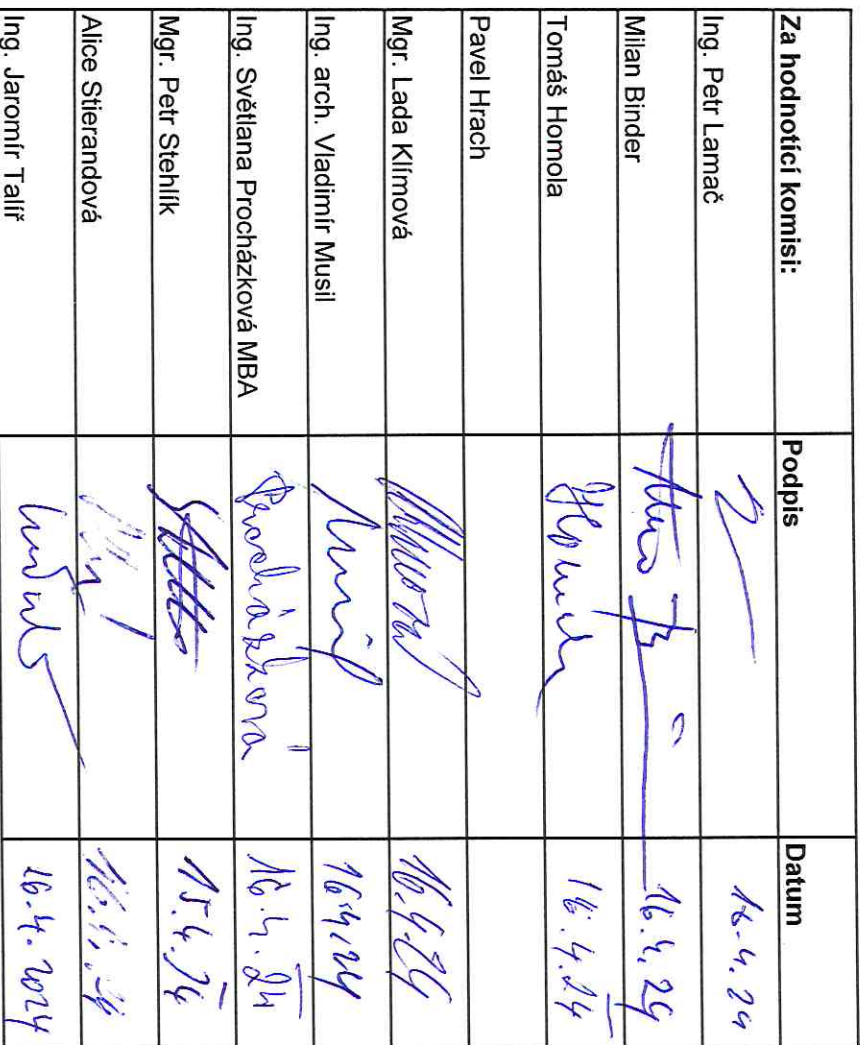 Za hodnotící komisi: Podpis Datum
Ing. Petr Lamač 16.4.24
Milan Binder 16.4.24
Tomáš Homola 16.4.24
Pavel Hrach
Mgr. Lada Klímová 16.4.24
Ing. arch. Vladimír Musil 16.4.24
Ing. Světlana Procházková MBA Procházková 16.4.24
Mgr. Petr Stehlík 15.4.24
Alice Stierandová 16.4.24
Ing. Jaromír Talíř 16.4.2024